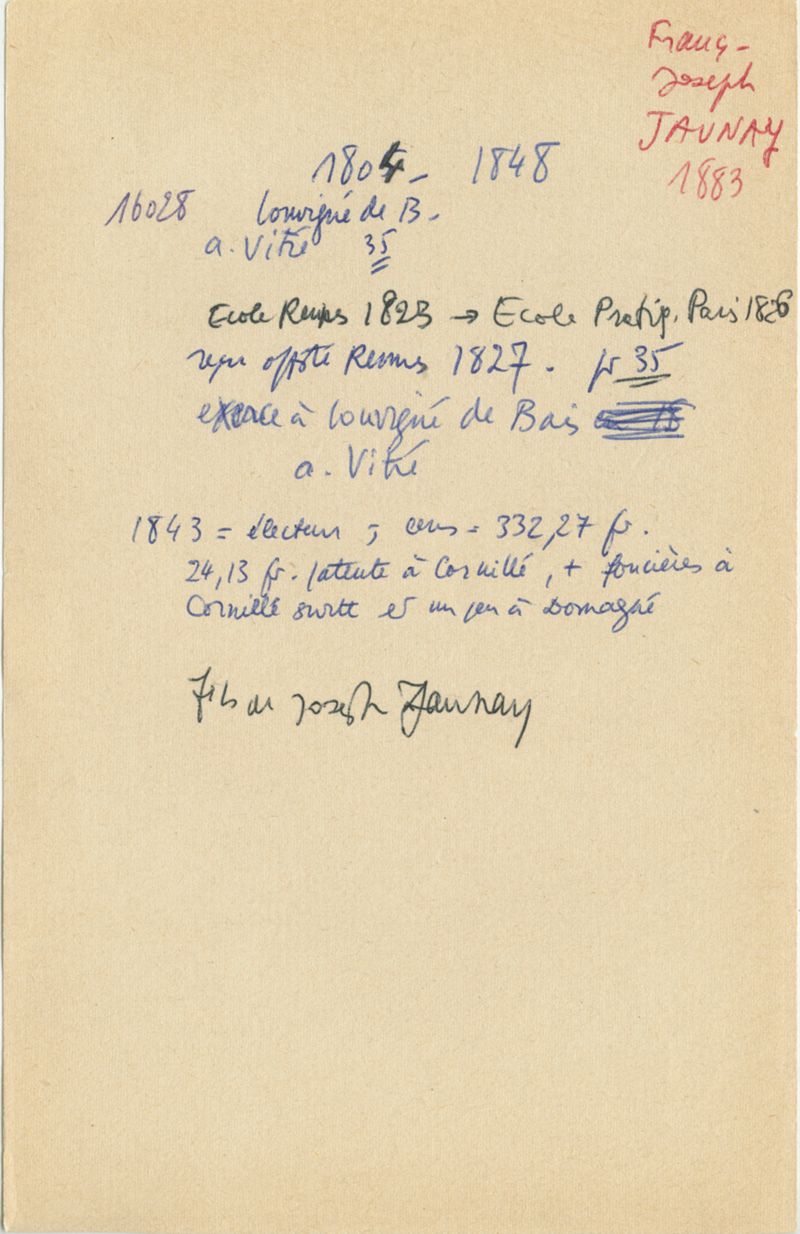 Franç-
Joseph
JAUNAY
1883
1804 - 1848
16028 Louvigné de B.
a. Vitré 35
Ecole Rennes 1823 → Ecole Pratiq. Paris 1826
reçu offste Rennes 1827. pr 35
exerce à Louvigné de Bais
a. Vitré
1843 = électeur ; cens = 332,27 fr.
24,13 fr. patente à Cornillé, + foncières à
Cornillé surtt et un peu à Domagné
fils de Joseph Jaunay